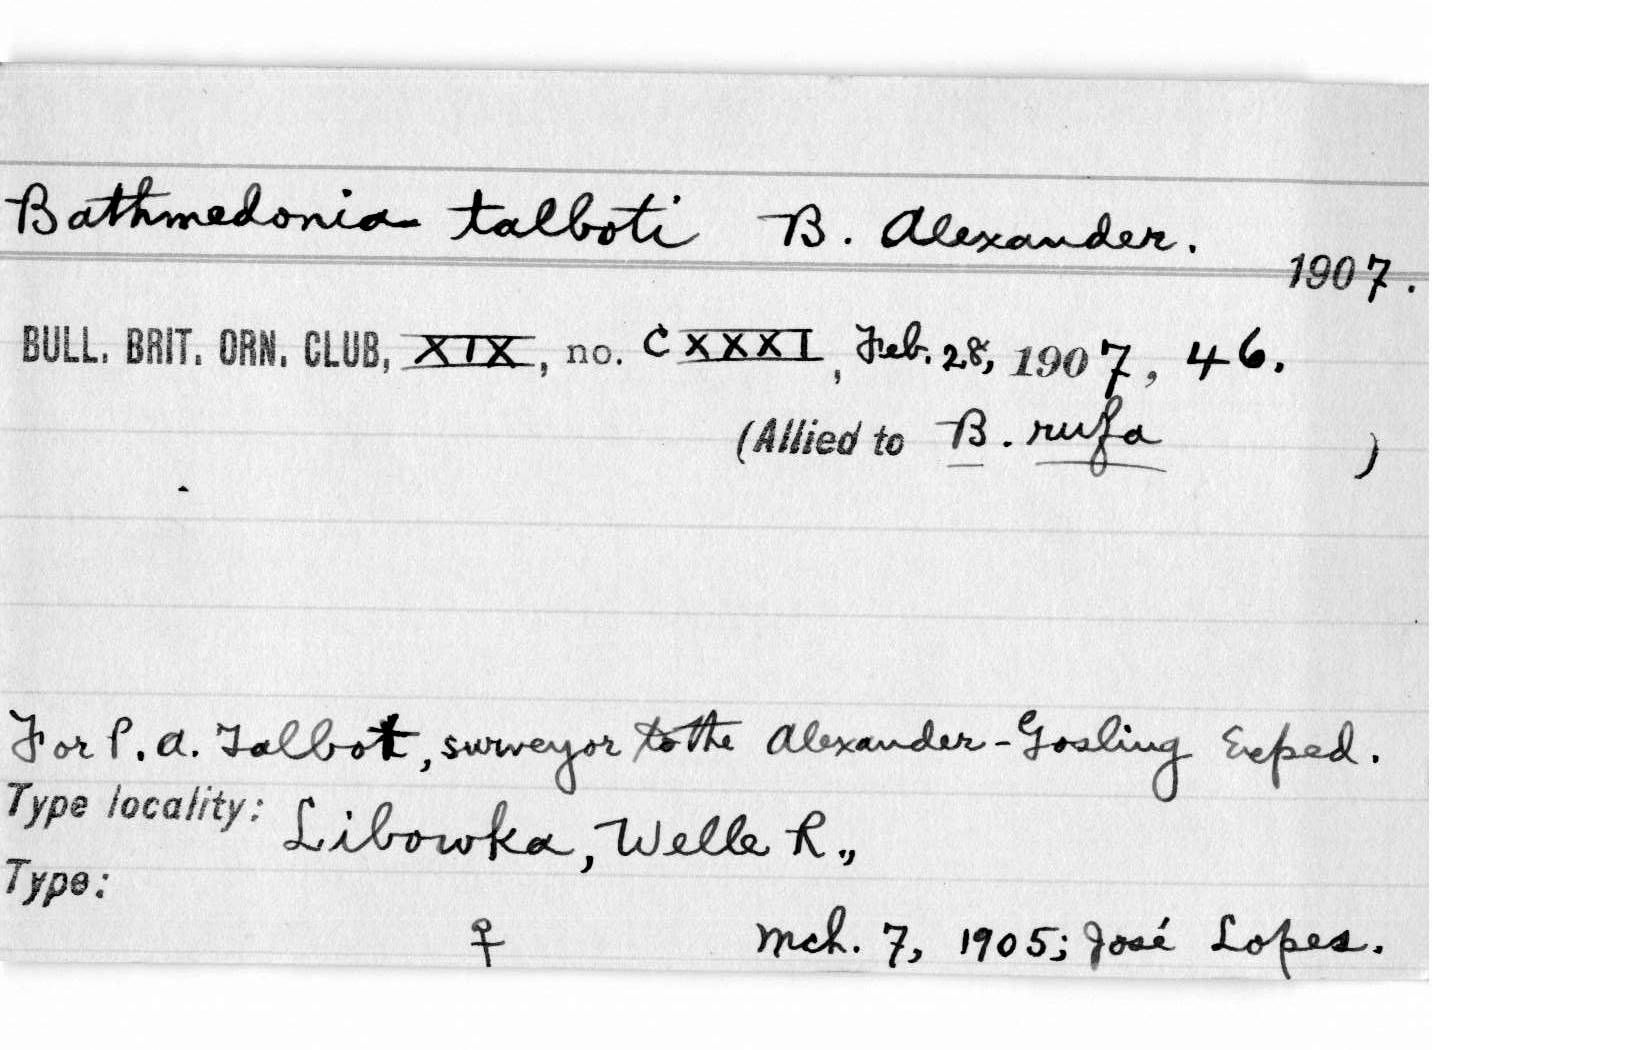 Bathmedonia talboti B. Alexander.
1907.
BULL. BRIT. ORN. CLUB, XIX, no. CXXXI, Feb. 28, 1907, 46.
(Allied to B. rufa )
For P. A. Talbot, surveyor to the Alexander-Gosling Exped.
Type locality: Libowka, Welle R.,
Type:
♀ Mch. 7, 1905; José Lopes.